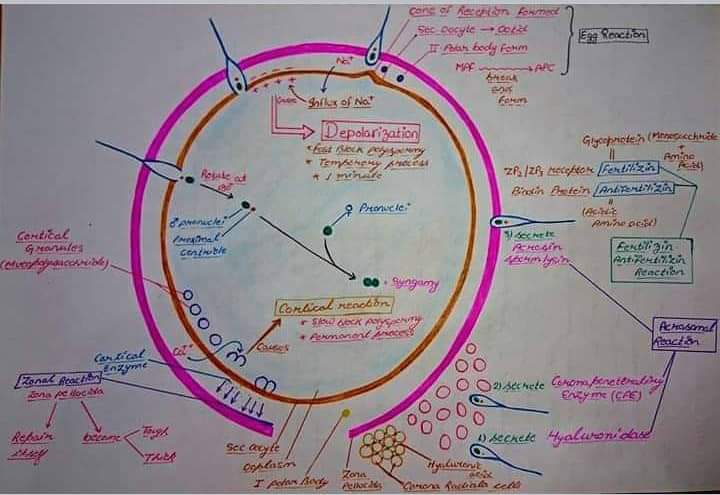 Cone of Reception formed
Sec Oocyte → Ootid
II Polar body form
MPF → APC
break
and
form
Egg Reaction
Na+
Influx of Na+
causes
Depolarization
* Fast Block polyspermy
* Temporary process
* 1 minute
Glycoprotein (Monosaccharide
+
Amino
Acid)
ZP3/ZP2 receptor Fertilizin
Bindin Protein Antifertilizin
(Acidic
Amino acid)
Fertilizin
Antifertilizin
Reaction
Rotate at
180°
♂ pronuclei
Proximal
Centriole
♀ Pronuclei
Syngamy
3) Secrete
Acrosin
Spermlysin
Acrosomal
Reaction
Cortical
Granules
(Mucopolysaccharide)
Cortical reaction
* Slow block polyspermy
* Permanent process
Ca++
causes
Cortical
Enzyme
Zonal Reaction
Zona pellucida
Repair
itself
become
Tough
Thick
2) Secrete Corona penetrating
Enzyme (CPE)
1) Secrete Hyaluronidase
Sec Oocyte
Ooplasm
I Polar Body
Zona
Pellucida
Hyaluronic
acid
Corona Radiata cells